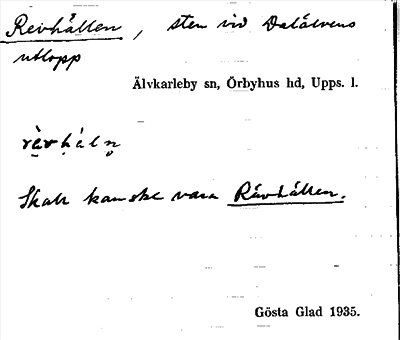 Revhällen, sten vid Dalälvens
utlopp
Älvkarleby sn, Örbyhus hd, Upps. l.
Skall kanske vara Rävhällen.
Gösta Glad 1935.